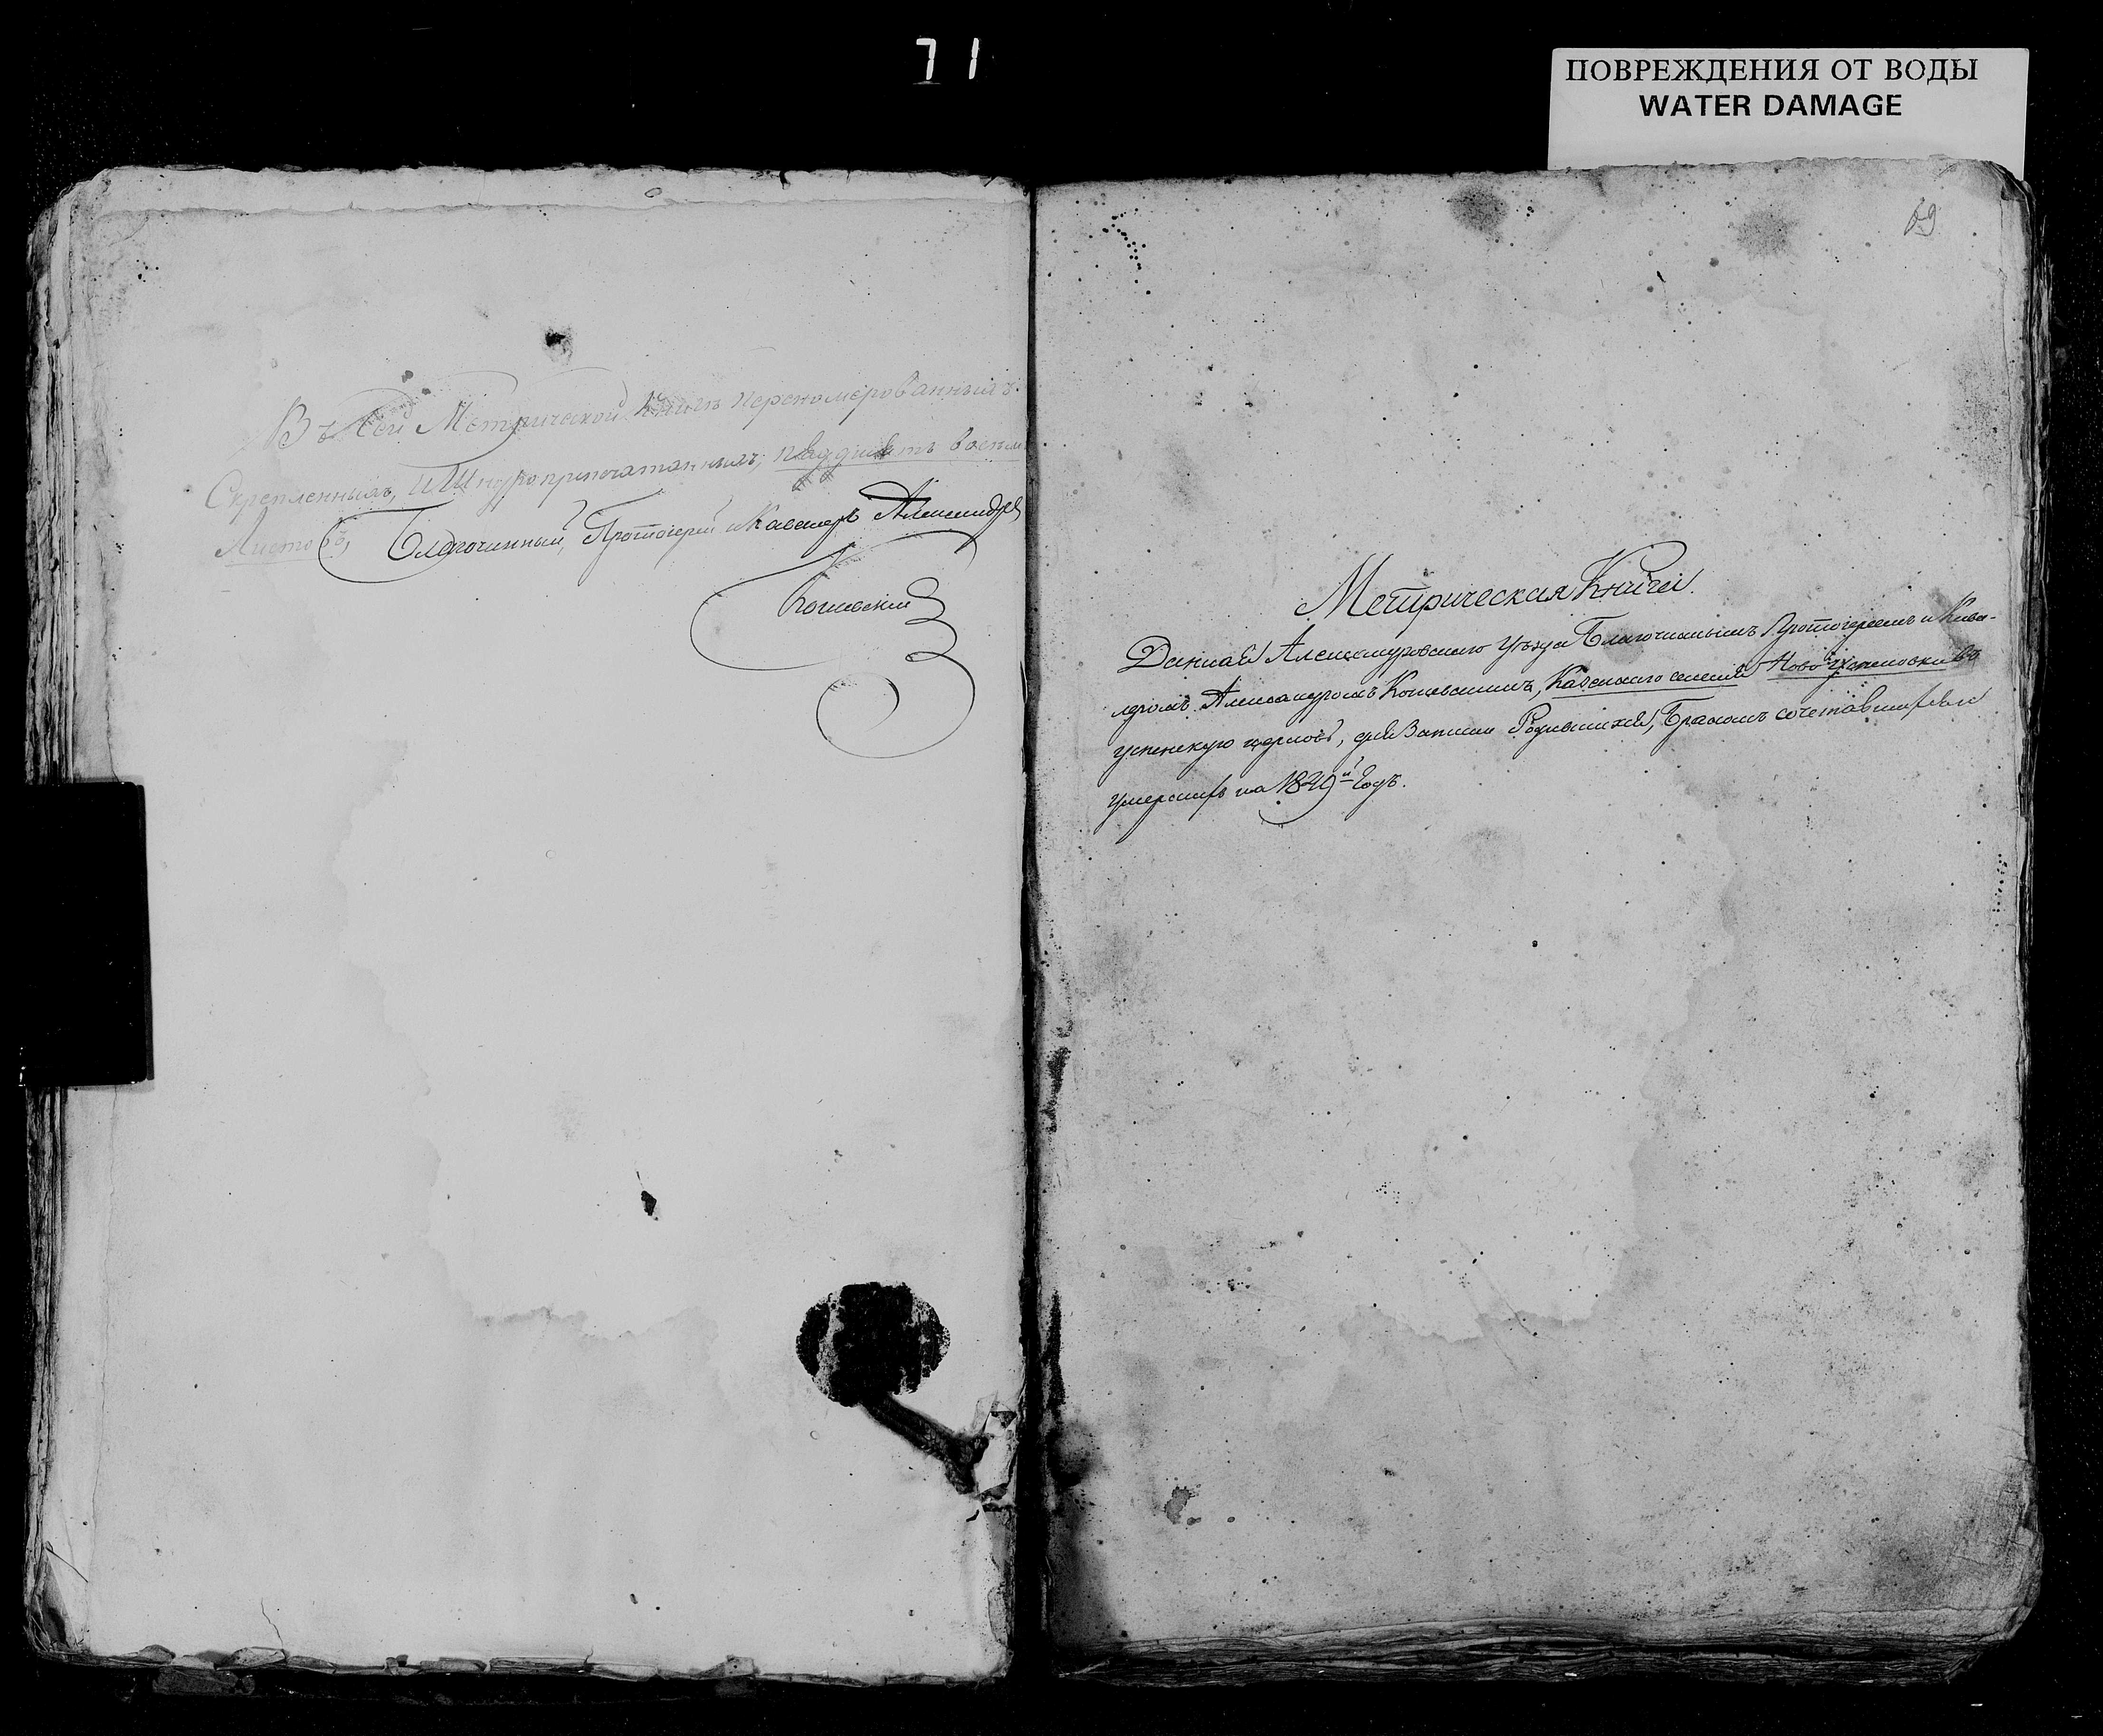 71
ПОВРЕЖДЕНИЯ ОТ ВОДЫ
WATER DAMAGE
Въ Сей Метрической Книгѣ перекомерованныхъ
Скрепленныхъ, и Шнуропрпечатанныхъ, двадцать восемь
Листовъ, Благочинный, Протоіерей и Кавалеръ Александръ
Кошевский
69
Метрическая Книга.
Данная Александровскаго Уѣзда Благочиннымъ Протоіереемъ и Кава-
леромъ Александромъ Кошевскимъ, Казеннаго селения Ново Успеновки въ
успенскую церковь, для Записки Родившихся, Бракомъ сочетавшихся и
умершихъ на 1829й Годъ.